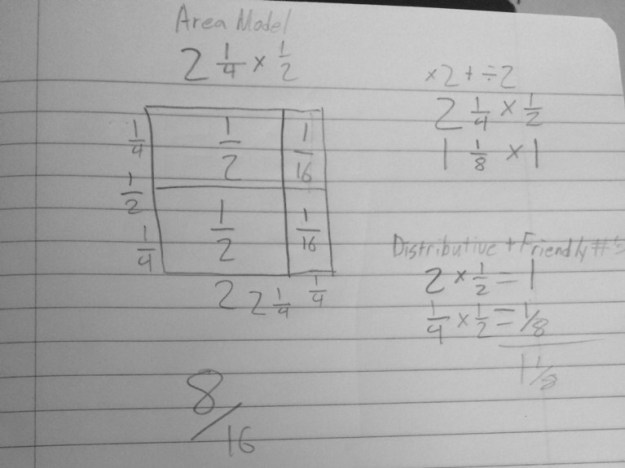 Area Model
2 1/4 × 1/2
1/4 1/2 1/16
1/2
1/4 1/2 1/16
2 2 1/4 1/4
8/16
×2 + ÷2
2 1/4 × 1/2
1 1/8 × 1
Distributive + Friendly #'s
2 × 1/2 = 1
1/4 × 1/2 = 1/8
1 1/8